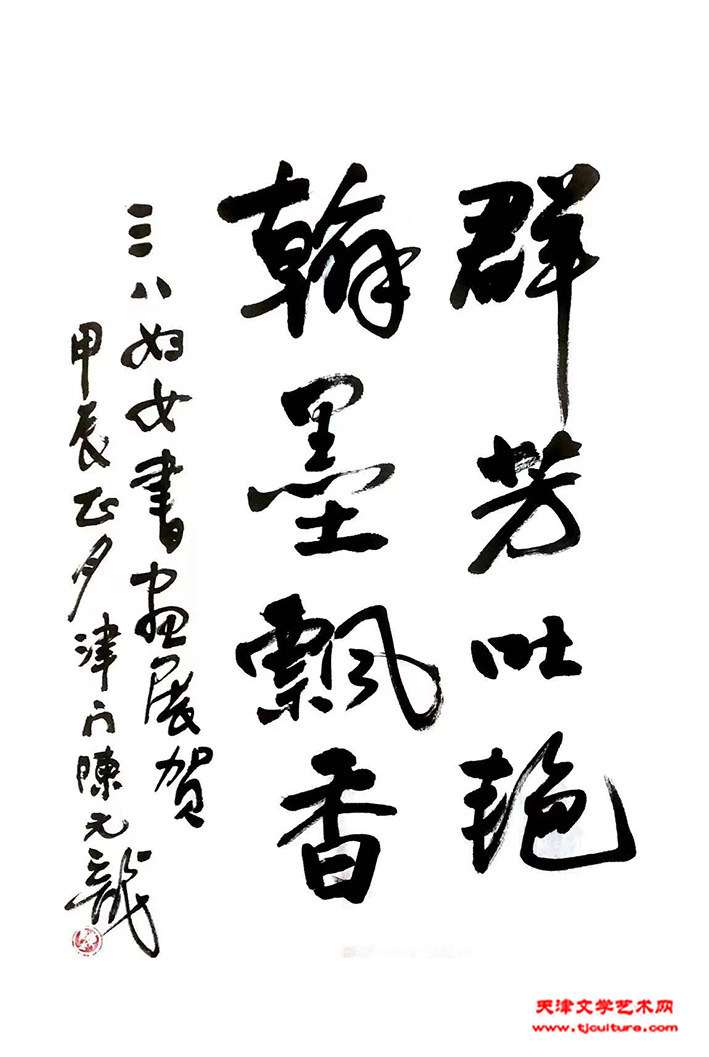 群芳吐艳
翰墨飘香
三八妇女書画展贺
甲辰正月津门陳元龍
天津文学艺术网
www.tjculture.com